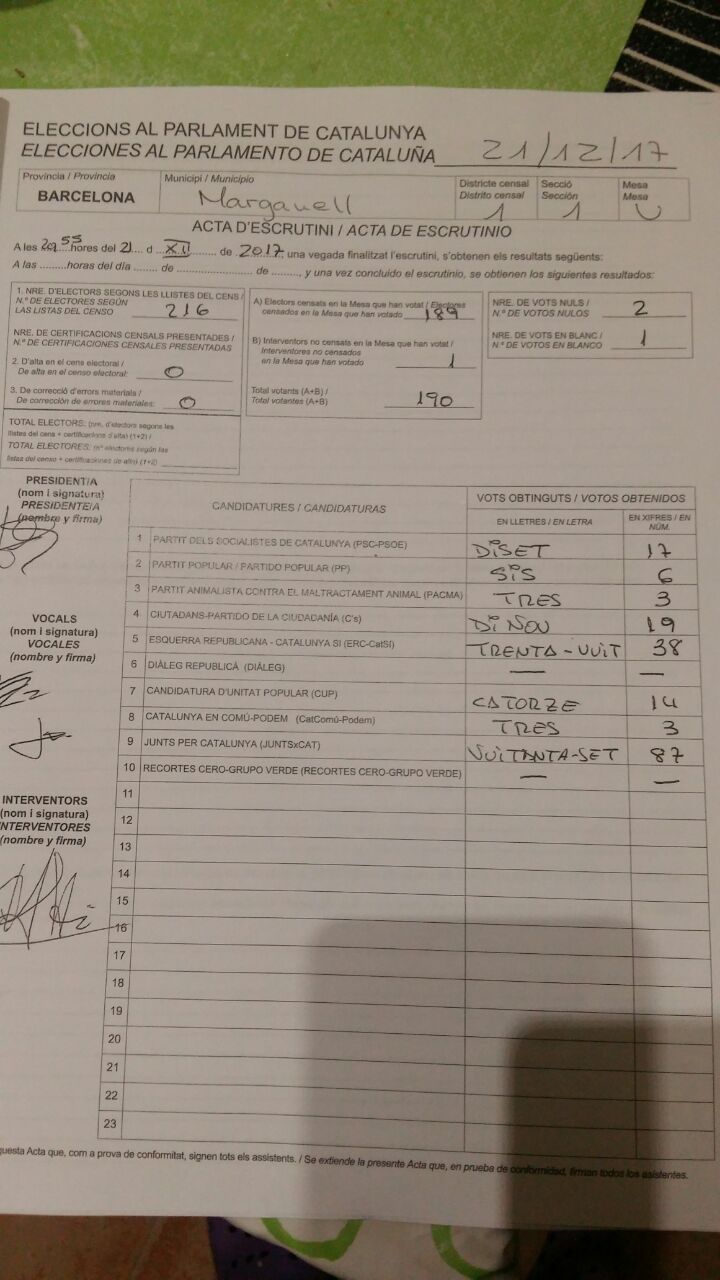 ELECCIONS AL PARLAMENT DE CATALUNYA
ELECCIONES AL PARLAMENTO DE CATALUÑA 21/12/17
Província / Provincia
BARCELONA
Municipi / Municipio
Marganell
Districte censal
Distrito censal
1
Secció
Sección
1
Mesa
Mesa
U
ACTA D'ESCRUTINI / ACTA DE ESCRUTINIO
A les 20,55 hores del 21 d XII de 2017, una vegada finalitzat l'escrutini, s'obtenen els resultats següents:
A las ......... horas del día ....... de ........................ de ........, y una vez concluido el escrutinio, se obtienen los siguientes resultados:
1. NRE. D'ELECTORS SEGONS LES LLISTES DEL CENS /
N.º DE ELECTORES SEGÚN
LAS LISTAS DEL CENSO 216
NRE. DE CERTIFICACIONS CENSALS PRESENTADES /
N.º DE CERTIFICACIONES CENSALES PRESENTADAS
2. D'alta en el cens electoral /
De alta en el censo electoral: 0
3. De correcció d'errors materials /
De corrección de errores materiales: 0
TOTAL ELECTORS: (nre. d'electors segons les
llistes del cens + certificacions d'alta) (1+2) /
TOTAL ELECTORES: (nº electores según las
listas del censo + certificaciones de alta) (1+2)
A) Electors censats en la Mesa que han votat / Electores
censados en la Mesa que han votado 189
B) Interventors no censats en la Mesa que han votat /
Interventores no censados
en la Mesa que han votado 1
Total votants (A+B) /
Total votantes (A+B) 190
NRE. DE VOTS NULS /
N.º DE VOTOS NULOS 2
NRE. DE VOTS EN BLANC /
N.º DE VOTOS EN BLANCO 1
PRESIDENT/A
(nom i signatura)
PRESIDENTE/A
(nombre y firma)
VOCALS
(nom i signatura)
VOCALES
(nombre y firma)
INTERVENTORS
(nom i signatura)
INTERVENTORES
(nombre y firma)
CANDIDATURES / CANDIDATURAS
VOTS OBTINGUTS / VOTOS OBTENIDOS
EN LLETRES / EN LETRA
EN XIFRES / EN NÚM.
1 PARTIT DELS SOCIALISTES DE CATALUNYA (PSC-PSOE) DISET 17
2 PARTIT POPULAR / PARTIDO POPULAR (PP) SIS 6
3 PARTIT ANIMALISTA CONTRA EL MALTRACTAMENT ANIMAL (PACMA) TRES 3
4 CIUTADANS-PARTIDO DE LA CIUDADANÍA (C's) DINOU 19
5 ESQUERRA REPUBLICANA - CATALUNYA SI (ERC-CatSí) TRENTA-VUIT 38
6 DIÀLEG REPUBLICÀ (DIÀLEG) — —
7 CANDIDATURA D'UNITAT POPULAR (CUP) CATORZE 14
8 CATALUNYA EN COMÚ-PODEM (CatComú-Podem) TRES 3
9 JUNTS PER CATALUNYA (JUNTSxCAT) VUITANTA-SET 87
10 RECORTES CERO-GRUPO VERDE (RECORTES CERO-GRUPO VERDE) — —
11
12
13
14
15
16
17
18
19
20
21
22
23
questa Acta que, com a prova de conformitat, signen tots els assistents. / Se extiende la presente Acta que, en prueba de conformidad, firman todos los asistentes.